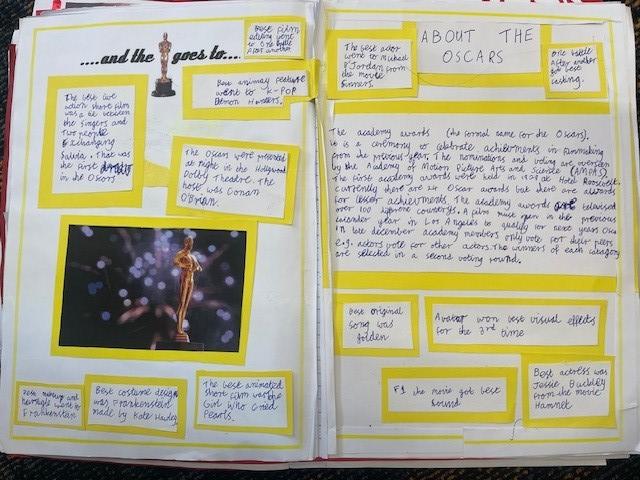 ....and the goes to....
Best film
editing went
to One battle
after another
Best animated feature
went to K-POP
Demon Hunters.
The best live
action short film
was a tie between
the singers and
Two people
Exchanging
Saliva. That was
the first
in the Oscars
The Oscars were presented
at night in the Hollywood
Dolby Theatre. The
host was Conan
O'Brian.
Best makeup and
hairstyle went to
Frankenstein
Best costume design
was Frankenstein
made by Kate Hawley
The best animated
short film was the
Girl Who Cried
Pearls.
The best actor
went to Michael
B Jordan from
the movie
Sinners.
ABOUT THE
OSCARS
One battle
after another
got best
casting.
The academy awards (the formal name for the Oscars).
It is a ceremony to celebrate achievements in filmmaking
from the previous year. The nominations and voting are overseen
by the Academy of Motion Picture Arts and Science (AMPAS)
The first academy awards were held in 1929 at Hotel Roosevelt.
Currently there are 24 Oscar awards but there are awards
for lesser achievements. The academy awards are televised
over 100 different countrys. A film must open in the previous
calender year in Los Angeles to qualify for next years Osca
In late december academy members only vote for their peers
e.g. actors vote for other actors. The winners of each category
are selected in a second voting round.
Best original
song was
Golden
Avatar won best visual effects
for the 3rd time
F1 the movie got best
sound
Best actress was
Jessie Buckley
from the movie
Hamnet